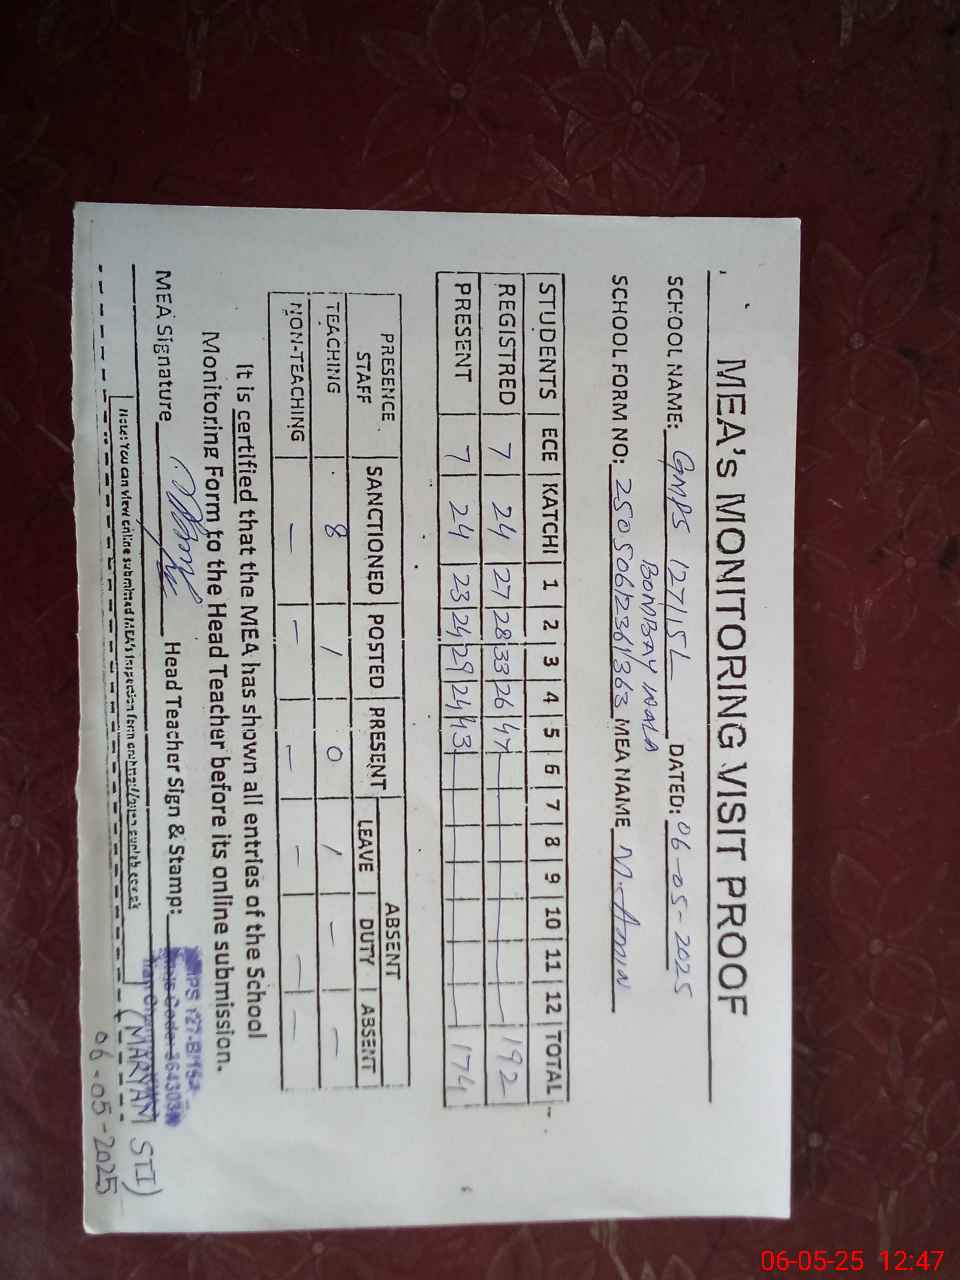 MEA's MONITORING VISIT PROOF
SCHOOL NAME: GMPS 127/15L DATED: 06-05-2025
BOMBAY WALA
SCHOOL FORM NO: MEA NAME M. Amin
STUDENTS ECE KATCHI 1 2 3 4 5 6 7 8 9 10 11 12 TOTAL
REGISTRED 7 24 27 28 33 26 47 192
PRESENT 7 24 23 24 29 24 43 174
PRESENCE STAFF SANCTIONED POSTED PRESENT ABSENT
LEAVE DUTY ABSENT
TEACHING 8 1 0 1 - -
NON-TEACHING - - - - - -
It is certified that the MEA has shown all entries of the School
Monitoring Form to the Head Teacher before its online submission.
MEA Signature Head Teacher Sign & Stamp:
Note: You can view online submitted MEA's inspection form on
(MARYAM STI)
06-05-2025
06-05-25 12:47